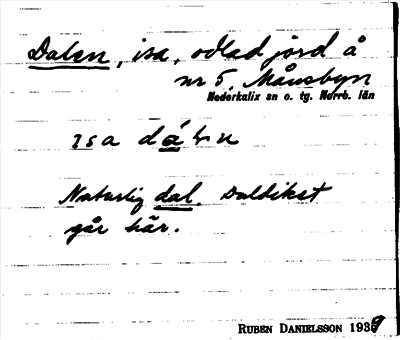 Dalen, isa, odlad jord å
nr 5, Månsbyn
Nederkalix sn o. tg. Norrb. län
isa
Naturlig dal. Daldiket
går här.
RUBEN DANIELSSON 1939